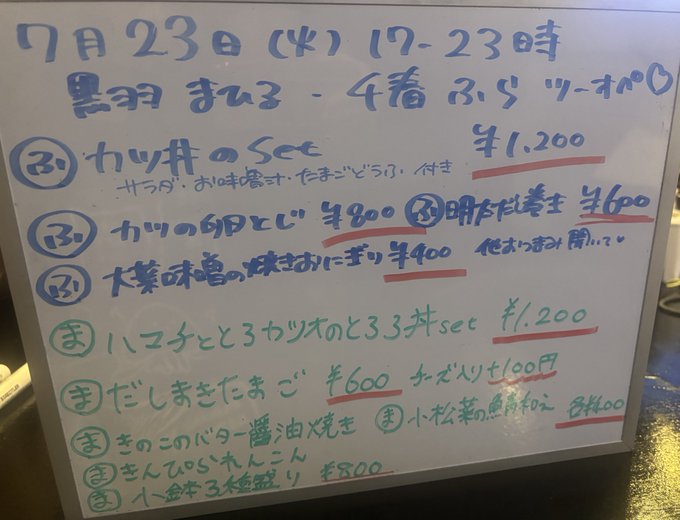 7月23日(火) 17-23時
黒羽 まひる・千着 ふら ツーオペ♡
ふ カツ丼のset ¥1,200
サラダ・お味噌汁・たまごどうふ 付き
ふ カツの卵とじ ¥800 ふ 明太だし巻き ¥600
ふ 大葉味噌の焼きおにぎり ¥400 他おつまみ聞いて♡
ま ハマチととろカツオのとろろ丼set ¥1,200
ま だしまきたまご ¥600 チーズ入り+100円
ま きのこのバター醤油焼き ま 小松菜の鯖和え 各¥400
ま きんぴられんこん
ま 小鉢3種盛り ¥800